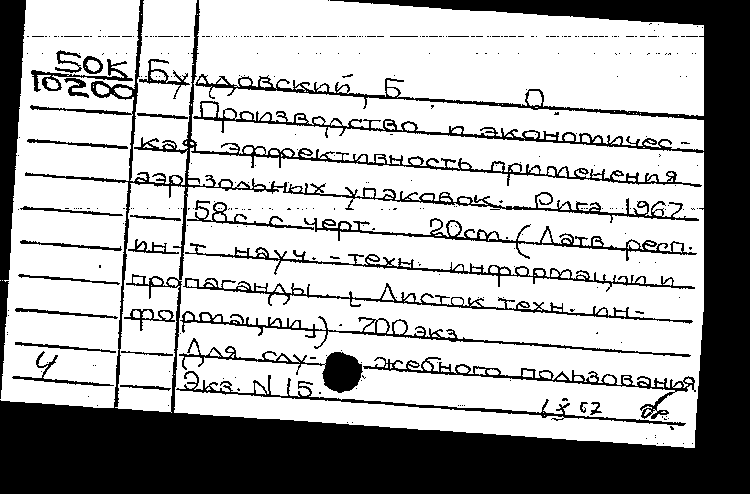 50К
10200
Буддовский, Б. О.
Производство и экономичес-
кая эффективность применения
аэрозольных упаковок. Рига, 1967
58с. с черт. 20см. (Латв. респ.
ин-т науч.-техн. информации и
пропаганды [Листок техн. ин-
формации]). 700экз.
Для слу- жебного пользования
Экз. N 15.
4